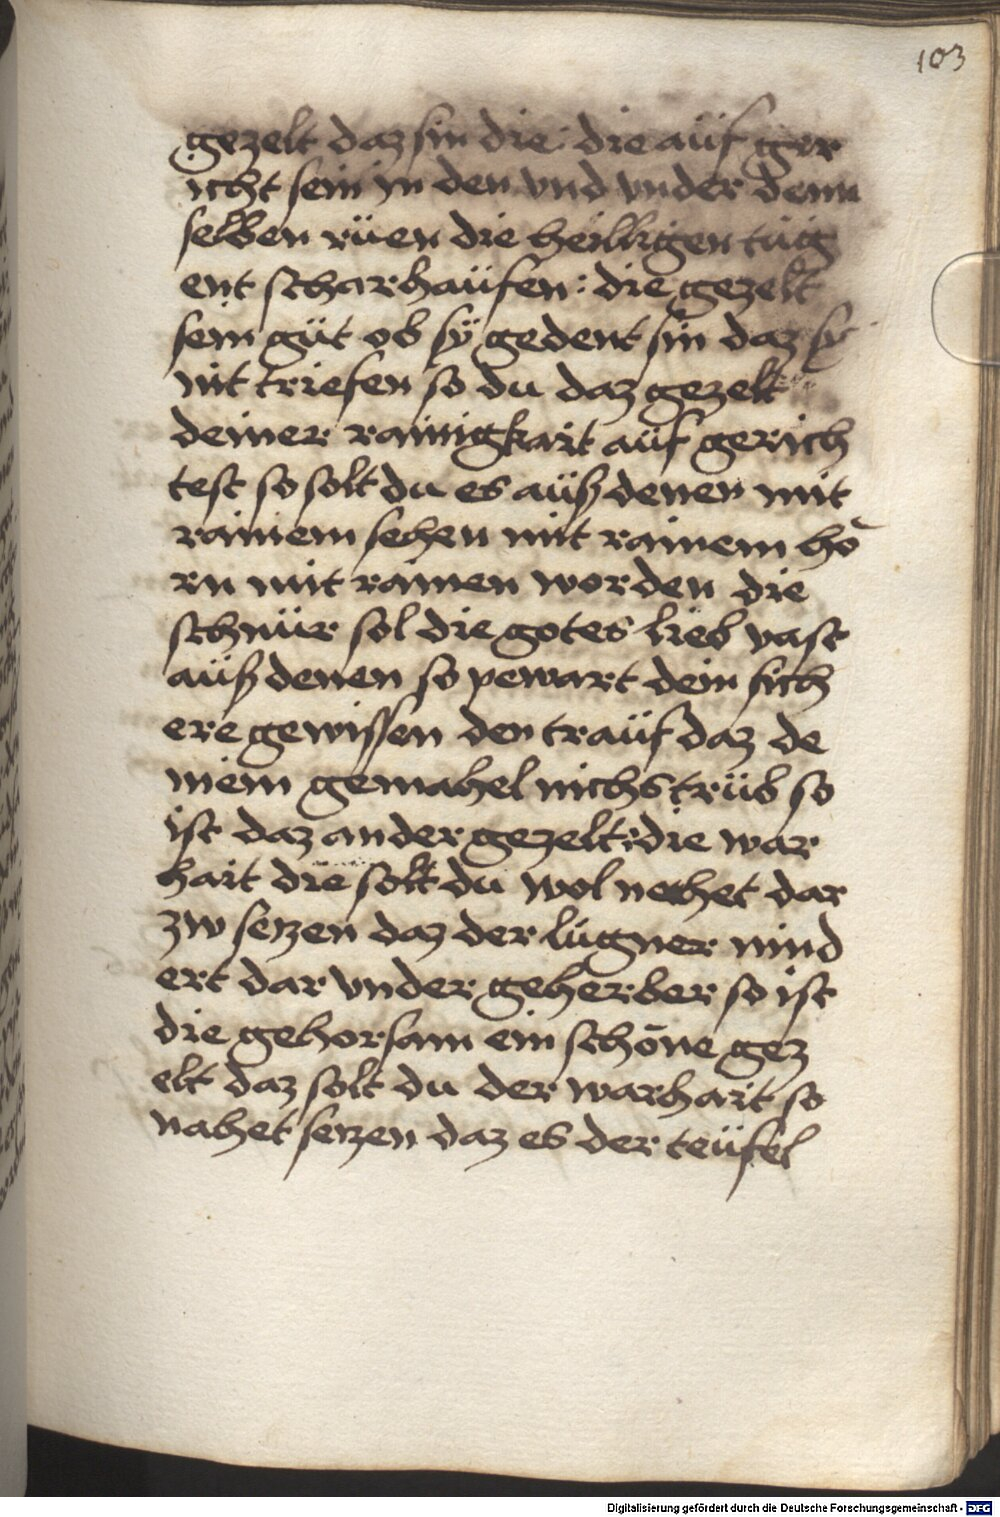 103
gezelt daz sin die: die aüf ger
icht sein in den vnd vnder denn
selben rüen die heilligen tüg
ent scharhaüfen: die gezelt
sein güt ob sÿ gedent sin daz sy
nit triefen so du daz gezelt
deiner rainigkait aüf gerich
test so solt du es aüß denen mit
rainem sehen mit rainem hö
rn mit rainen worden die
schnür sol die gotes lieb vast
aüß denen so pewart dein sich
ere gewissen den traüf daz de
niem gemahel nichs trüb so
ist daz ander gezelt: die war
hait die solt du wol nechet dar
zw seczen daz der lügner nind
ert dar vnder geherber so ist
die gehorsam ein schöne gez
elt daz solt du der warhait so
nahet seczen daz es der teüfel
Digitalisierung gefördert durch die Deutsche Forschungsgemeinschaft - DFG